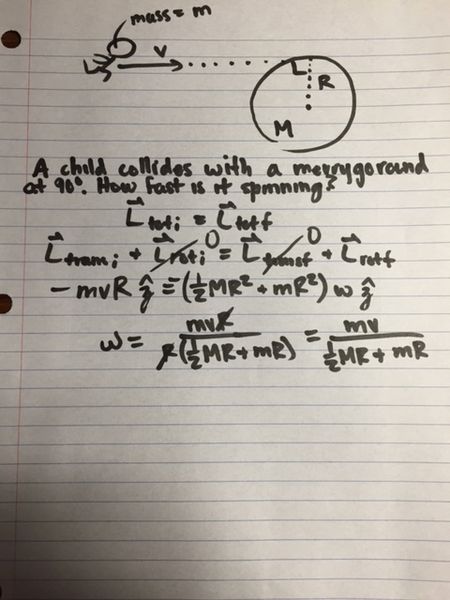 mass = m
v
L
R
M
A child collides with a merrygoround
at 90°. How fast is it spinning?
L⃗ tot i = L⃗ tot f
L⃗ trans i + L⃗ rot i 0 = L⃗ transf 0 + L⃗ rotf
- mvR ẑ = (½MR² + mR²) ω ẑ
ω = mvR / R(½MR + mR) = mv / ½MR + mR